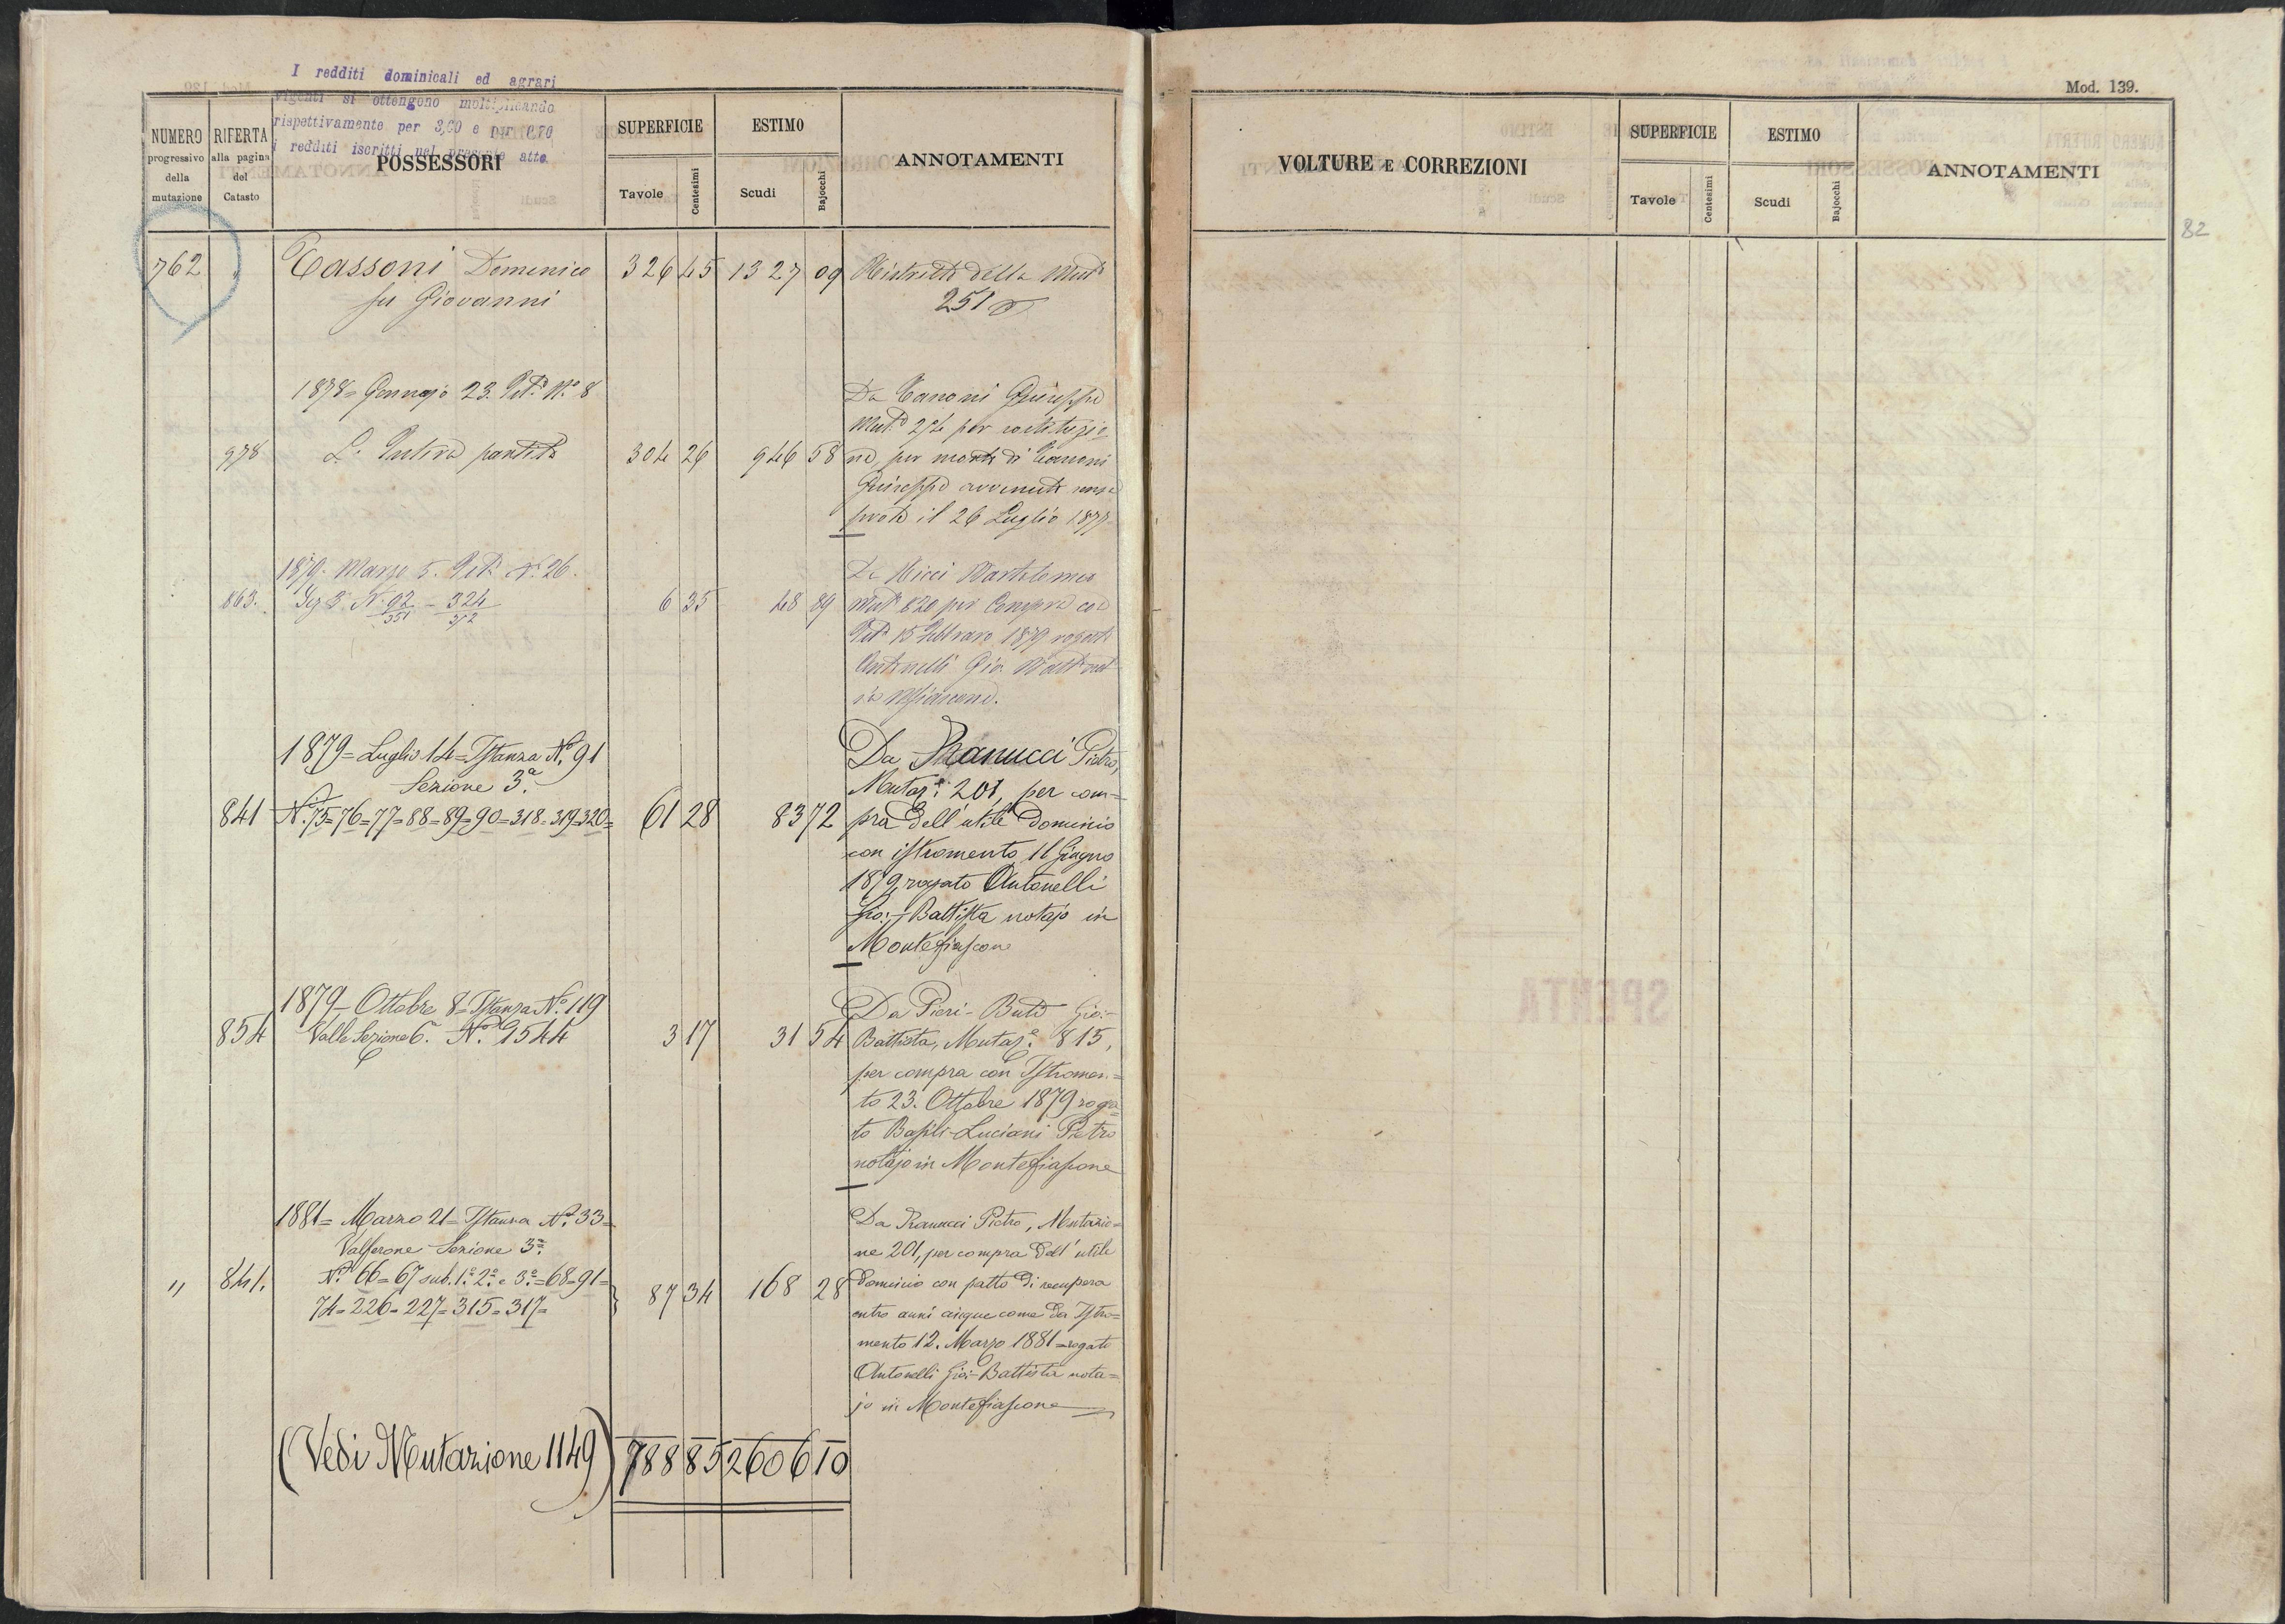 I redditi dominicali ed agrari
vigenti si ottengono moltiplicando
rispettivamente per 3,60 e per 0,70
i redditi iscritti nel presente atto.
NUMERO
progressivo
della
mutazione
RIFERTA
alla pagina
del
Catasto
POSSESSORI
SUPERFICIE
Tavole
Centesimi
ESTIMO
Scudi
Bajocchi
ANNOTAMENTI
762 Domenico 326 45 1327 09 della Mut.
fu Giovanni 251
1878 = Gennajo 23. N.° 8
978 L' Intera partita 304 26 946 58
Da Giuseppe
per
per morte di
Giuseppe avvenuta
il 26 Luglio 1877
1879. Marzo 5. N. 26.
863. N. 92 - 324 6 35 48 89
351 572
Da Ricci Bartolomeo
Mut. 820 per Compra
15 Febbraro 1879 rogato
Antonelli Gio. Batt.
1879 = Luglio 14 = Istanza N.° 91
Sezione 3.a
841 N.i 75=76=77=88=89=90=318=319=320= 61 28 83 72
Da Ranucci Pietro,
Mutaz.e 201, per com=
pra dell' utile Dominio
con istromento 11 Giugno
1879 rogato Antonelli
Gio:-Battista notajo in
Montefiascone
1879 - Ottobre 8 = Istanza N.° 119
854 Valle Sezione 6.a N.° 1544 3 17 31 54
Da Pieri - Buti Gio:-
Battista, Mutaz.e 815,
per compra con Istromen=
to 23. Ottobre 1879 roga=
to Basili-Luciani Pietro
notajo in Montefiascone
1881 = Marzo 21 = Istanza N.° 33=
Valferone Sezione 3.a
" 841. N.i 66=67 sub. 1.° 2.° e 3.°=68=91= 87 34 168 28
74=226=227=315=317=
Da Ranucci Pietro, Mutazio=
ne 201, per compra dell' utile
dominio con patto di recupera
entro anni cinque come da Istro=
mento 12. Marzo 1881 = rogato
Antonelli Gio:-Battista nota=
jo in Montefiascone
(Vedi Mutazione 1149) 788 85 2606 10
Mod. 139.
VOLTURE E CORREZIONI
SUPERFICIE
Tavole
Centesimi
ESTIMO
Scudi
Bajocchi
ANNOTAMENTI
82
SPENTA